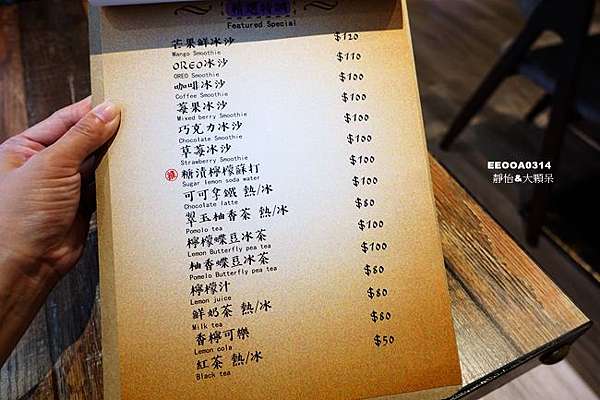 精選特調
Featured Special
芒果鮮冰沙 $120
Mango Smoothie
OREO冰沙 $110
OREO Smoothie
咖啡冰沙 $100
Coffee Smoothie
莓果冰沙 $100
Mixed berry Smoothie
巧克力冰沙 $100
Chocolate Smoothie
草莓冰沙 $100
Strawberry Smoothie
糖漬檸檬蘇打 $100
Sugar lemon soda water
可可拿鐵 熱/冰 $100
Chocolate latte
翠玉柚香茶 熱/冰 $80
Pomelo tea
檸檬蝶豆冰茶 $100
Lemon Butterfly pea tea
柚香蝶豆冰茶 $100
Pomelo Butterfly pea tea
檸檬汁 $80
Lemon juice
鮮奶茶 熱/冰 $80
Milk tea
香檸可樂 $80
Lemon cola
紅茶 熱/冰 $50
Black tea
EEOOA0314
靜怡&大顆呆